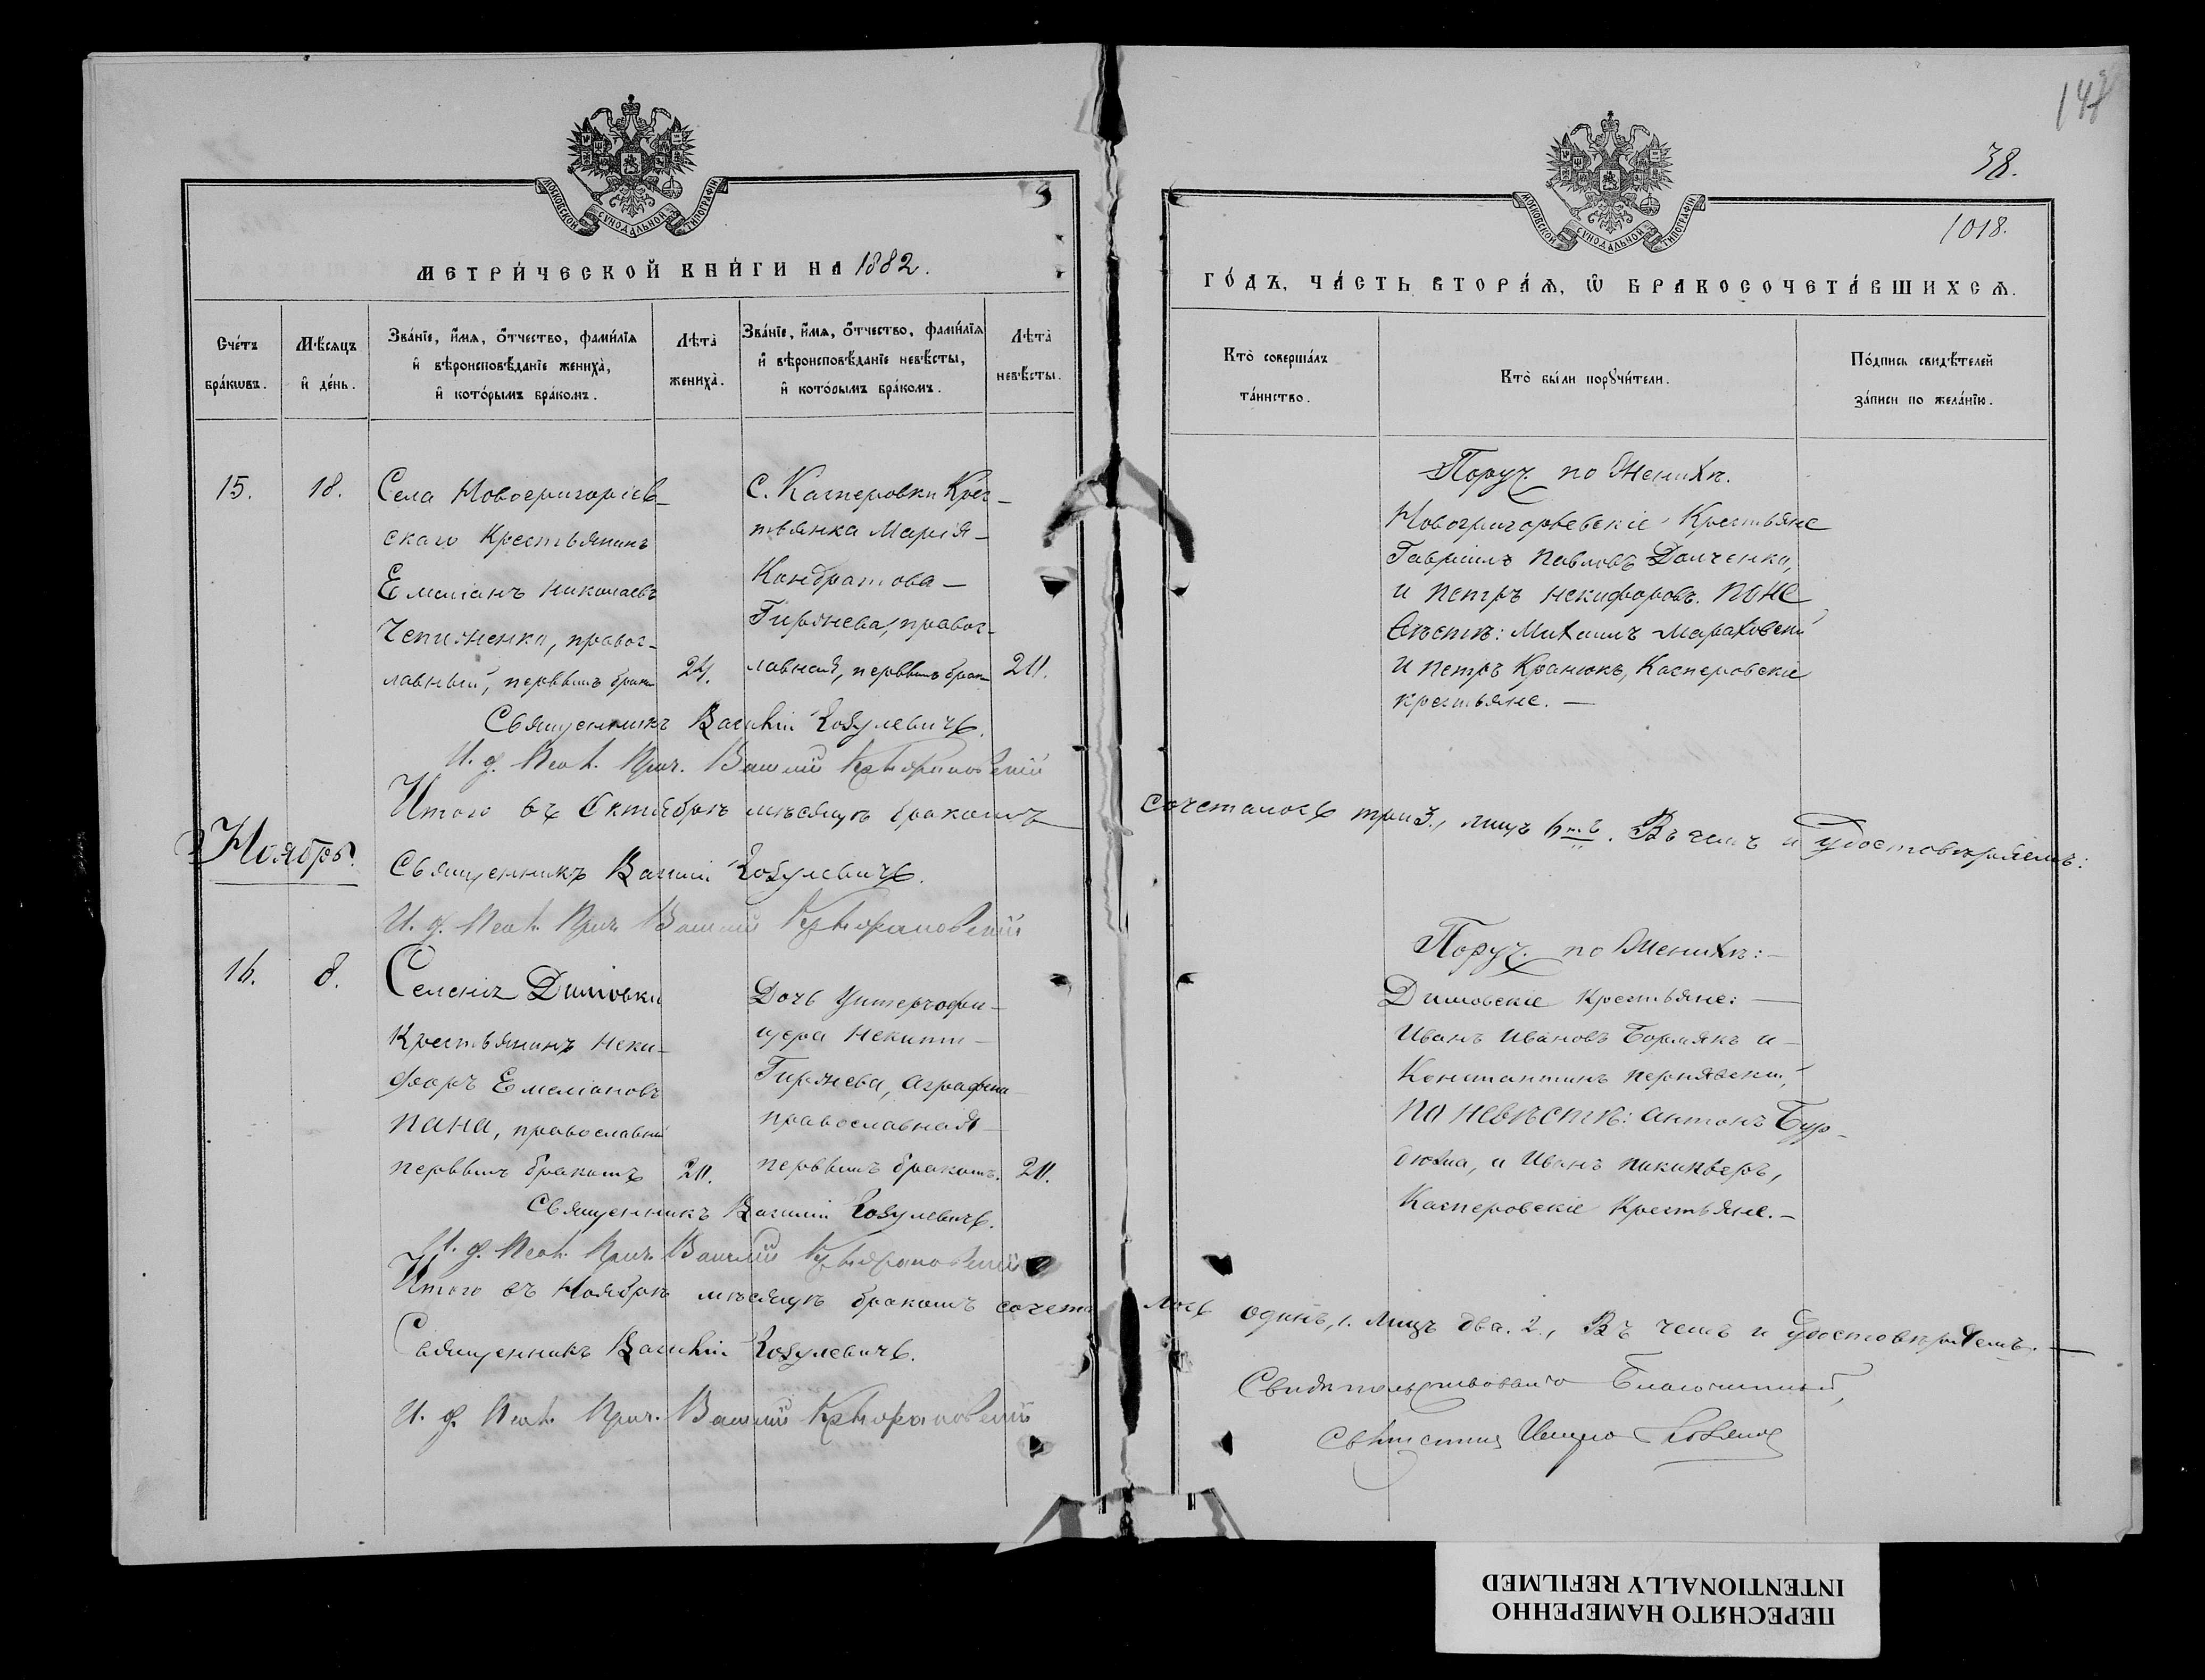 148
38.
1018.
МОСКОВСКОЙ СУНОДАЛЬНОЙ ТИПОГРАФІИ
МЕТРИ́ЧЕСКОЙ КНИ́ГИ НА 1882.
Сче́тъ бра́кѡвъ.
Мѣ́сяцъ и҆ де́нь.
Зва́нїе, и҆́мѧ, ѻ҆́тчество, фами́лїѧ
и҆ вѣроисповѣ́данїе жениха̀,
и҆ кото́рымъ бра́комъ.
Лѣта̀ жениха̀.
Зва́нїе, и҆́мѧ, ѻ҆́тчество, фами́лїѧ
и҆ вѣроисповѣ́данїе невѣ́сты,
и҆ кото́рымъ бра́комъ.
Лѣта̀ невѣ́сты.
15.
18.
Села Новогригоріев-
скаго Крестьянинъ
Емеліанъ Николаевъ
Чепиженко, правос-
лавный, первымъ брако
24.
С. Касперовки Крес-
тьянка Марія-
Кондратова-
Гиржева, правос-
лавная, первымъ брак
20.
Священникъ Василій Козулевичъ.
И. д. Псал. Прич.
Итого въ Октябрѣ мѣсяцѣ бракомъ
Ноябрь.
Священникъ Василій Козулевичъ.
И. д. Псал. Прич.
16.
8.
Селенія Димовки
Крестьянинъ Ники-
форъ Емеліановъ
Пана, православный
первымъ бракомъ
20.
Дочь Унтерофи-
цера Никити-
Гиржева, Аграфена
православная
первымъ бракомъ.
20.
Священникъ Василій Козулевичъ.
И. д. Псал. Прич.
Итого въ Ноябрѣ мѣсяцѣ бракомъ сочета
Священникъ Василій Козулевичъ.
И. д. Псал. Прич.
МОСКОВСКОЙ СУНОДАЛЬНОЙ ТИПОГРАФІИ
ГО́ДЪ, ЧА́СТЬ ВТОРА́Ѧ, Ѡ҆ БРАКОСОЧЕТА́ВШИХСѦ.
Кто̀ соверша́лъ та́инство.
Кто̀ бы́ли порꙋчи́тели.
По́дпись свидѣ́телей за́писи по жела́нїю.
Поруч. по Женихѣ.
Новогригорьевскіе Крестьяне
Гавріилъ Павловъ Долченко,
и Петръ Никифоровъ. По не
вѣстѣ: Михаилъ Мараховскій
и Петръ Кранюкъ, Касперовскіе
крестьяне.—
сочеталось три 3., лицъ 6. Въ чемъ и удостовѣряемъ:
Поруч. по Женихѣ:-
Димовскіе крестьяне:—
Иванъ Ивановъ и-
Константинъ
По невѣстѣ: Антонъ Бур-
дюжа, и Иванъ
Касперовскіе Крестьяне.-
лось одинъ, 1. Лицъ два. 2., Въ чемъ и удостовѣряемъ.—
Свидѣтельствовалъ Благочинный,
ПЕРЕСНЯТО НАМЕРЕННО
INTENTIONALLY REFILMED